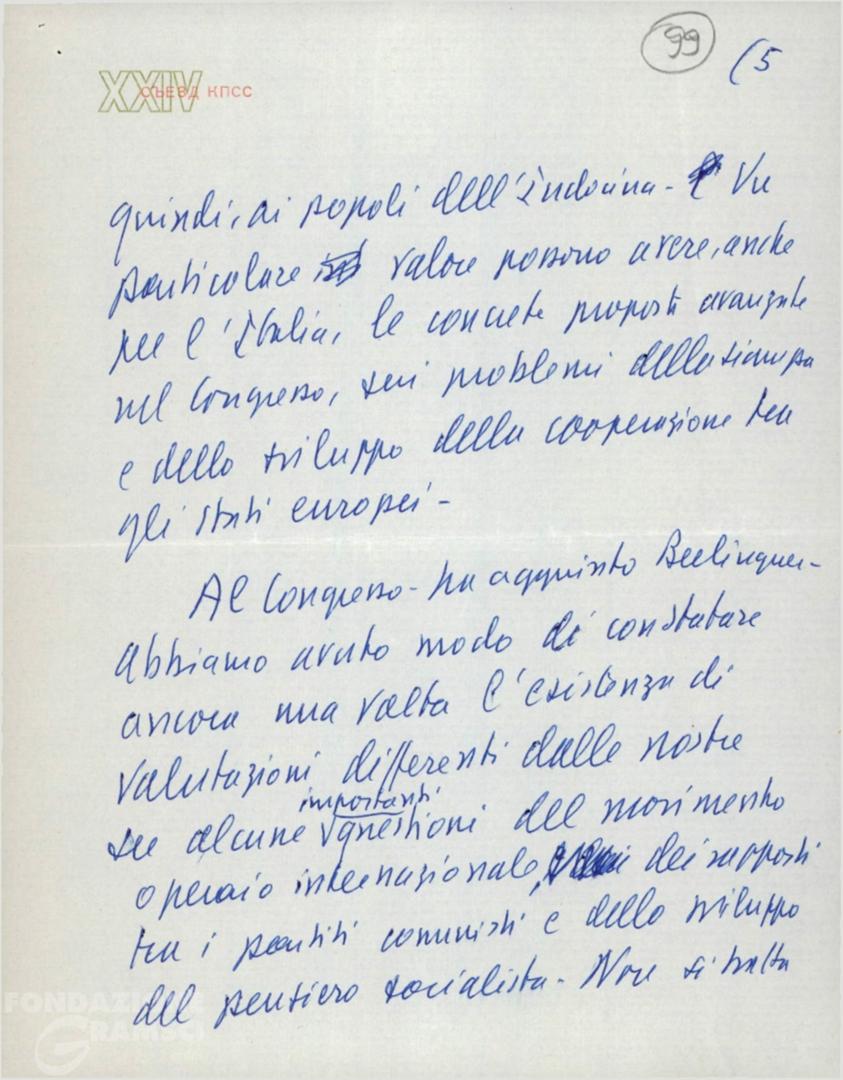 99
(5
XXIV
СЪЕЗД КПСС
quindi, ai popoli dell'Indocina - Un
particolare valore possono avere, anche
per l'Italia, le concrete proposte avanzate
nel Congresso, sui problemi della
e dello sviluppo della cooperazione tra
gli stati europei -
Al Congresso - ha aggiunto Berlinguer -
abbiamo avuto modo di constatare
ancora una volta l'esistenza di
valutazioni differenti dalle nostre
importanti
su alcune questioni del movimento
operaio internazionale, dei rapporti
tra i partiti comunisti e dello sviluppo
del pensiero socialista - Non si tratta
FONDAZIONE
GRAMSCI